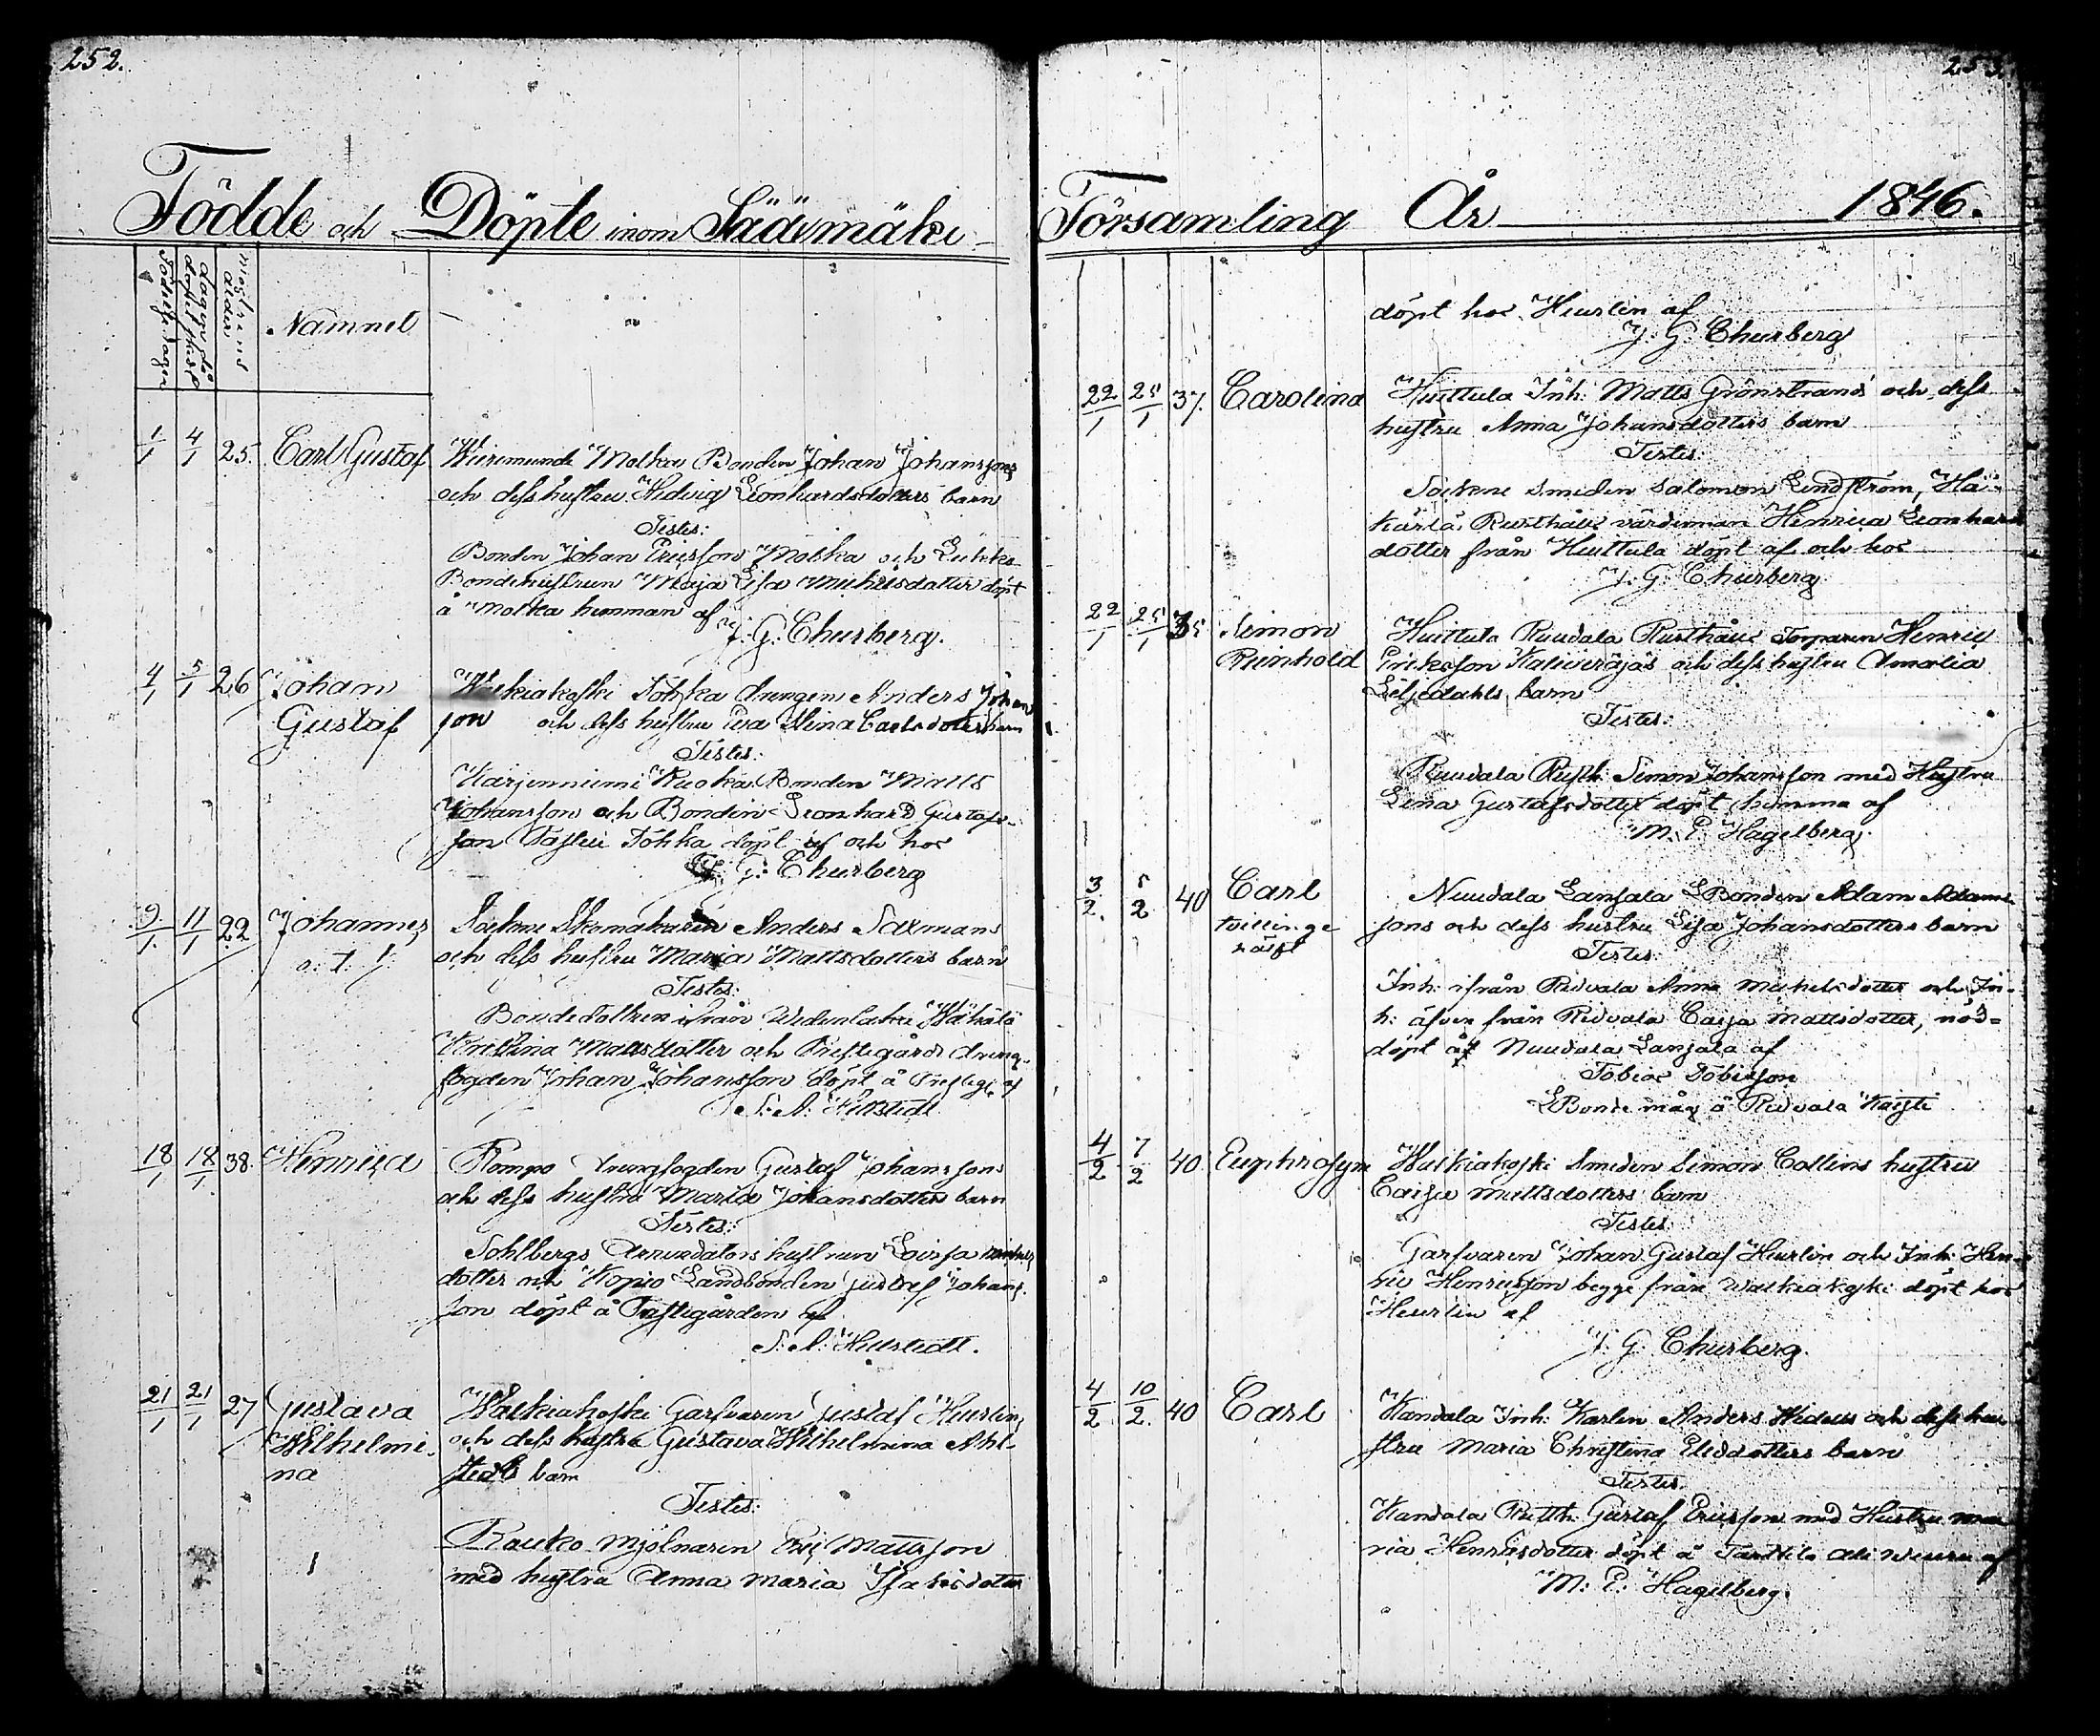 252.
Födde och Döpte inom Sääxmäki
Födelse dagen
dagen då dopet skedt
modrens ålder
Namnet
1/1 4/1 25. Carl Gustaf
Molka Bonden Johan Johanssons
och dess hustru Hedvig Leonhardsdotters barn
Testes:
Bonden Johan Ericsson Molka och
Bondehustrun Maja Lisa Michelsdotter döpt
å Molka hemman af
J. G. Churberg.
4/1 5/1 26 Johan
Gustaf
Walkiakoski drengen Anders Johan
son och dess hustru Eva Stina Carlsdotters barn
Testes:
Karjenniemi Kuoka Bonden Matts
Johansson och Bonden Leonhard Gustafs-
son döpt af och hos
J. G: Churberg
9/1. 11/1 22 Johannes
o. ä.
Sockne Skomakaren Anders Saxmans
och dess hustru Maria Mattsdotters barn
Testes:
Bondedottren ifrån
Christina Mattsdotter och Prestegårds dreng-
fogden Johan Johansson döpt å Prestege af
S: A: Hellstedt
18/1 18/1. 38. Henrica
Rompo drengfogden Gustaf Johanssons
och dess hustru Maria Johansdotters barn
Testes:
Sohlbergs Arrendators hustrun Lovisa Michels
dotter och Kopio Landbonden Gustaf Johans-
son döpt å Prestegården af
S: A: Hellstedt.
21/1 21/1 27 Gustava
Wilhelmi-
na
Walkiakoski Garfvaren Gustaf Heurlins
och dess hustru Gustava Wilhelmina Ahl-
stedts barn
Testes:
Rauko Mjölnaren Eric Mattsson
med hustru Anna Maria Isaksdotter
253.
Församling År 1846.
döpt hos Heurlin af
J. G. Churberg
22/1 25/1 37. Carolina
Huittula Inh: Matts Grönstrands och dess
hustru Anna Johansdotters barn
Testes:
Sockne Smeden Salomon Lindström,
Rusthålls värdinnan Henrica Leonhards
dotter från Huittula döpt af och hos
J. G. Churberg.
22/1 25/1 35 Simon
Reinhold
Huittula Ruudala Rusthålls Torparen Henric
Eriksson och dess hustru Amalia
Liljedahls barn
Testes:
Ruudala Rusth: Simon Johansson med Hustru
Lena Gustafsdotter döpt hemma af
M. E. Hagelberg.
3/2. 5/2 40 Carl
tvillinge
Nuudala Lansala LBonden Adam Adams-
sons och dess hustru Lisa Johansdotters barn
Testes:
Inh: ifrån Ridvala Anna Michelsdotter och In-
h: äfven från Ridvala Caisa Mattsdotter, nöd-
döpt åt Nuudala Lansala af
Tobias Tobiasson
LBonde måg å Ridvala
4/2 7/2 40. Euphrosyne
Walkiakoski Smeden Simon Collins hustru
Caisa Mattsdotters barn
Testes:
Garfvaren Johan Gustaf Heurlin och Inh: Hen-
ric Henricsson begge från Walkiakoski döpt hos
Heurlin af
J. G. Churberg.
4/2 10/2. 40 Carl
Kandala Inh: Karlen Anders och dess hu-
stru Maria Christina Elisdotters barn
Testes.
Kandala Rusth: Gustaf Ericsson med Hustru Ma
ria Henricsdotter döpt å af
M: E: Hagelberg.